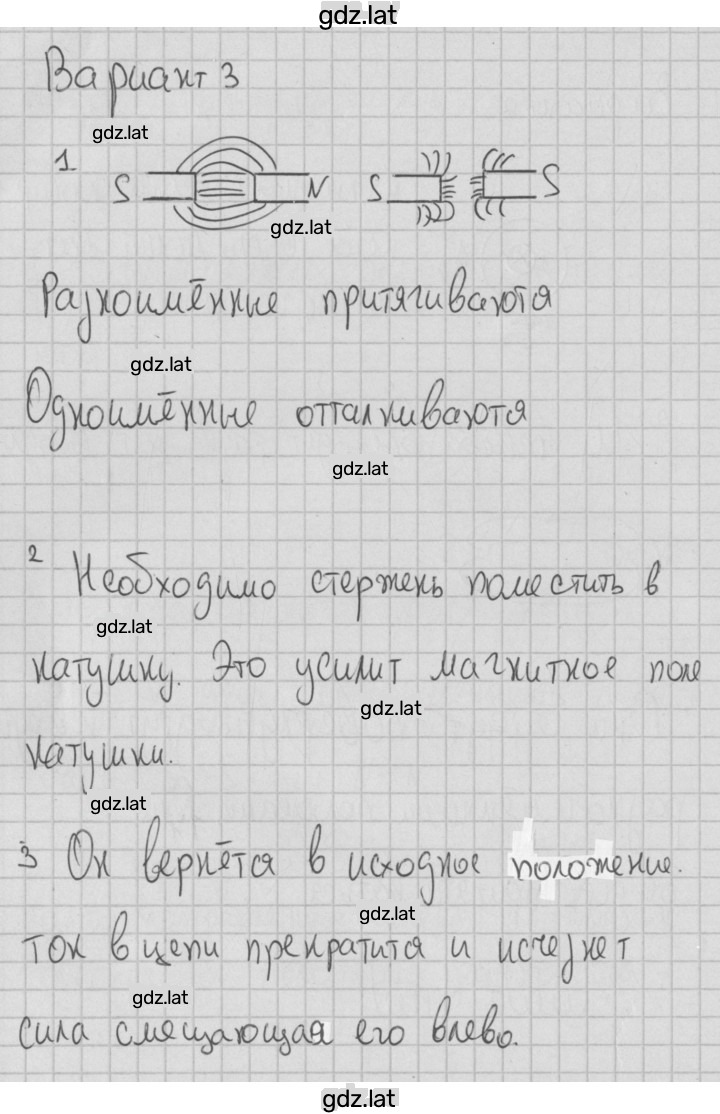 gdz.lat
Вариант 3
gdz.lat
1
S N S S
gdz.lat
Разноимённые притягиваются
gdz.lat
Одноимённые отталкиваются
gdz.lat
2 Необходимо стержень поместить в
gdz.lat
катушку. Это усилит магнитное поле
gdz.lat
катушки.
gdz.lat
3 Он вернётся в исходное положение.
gdz.lat
ток в цепи прекратится и исчезнет
gdz.lat
сила смещающая его влево.
gdz.lat